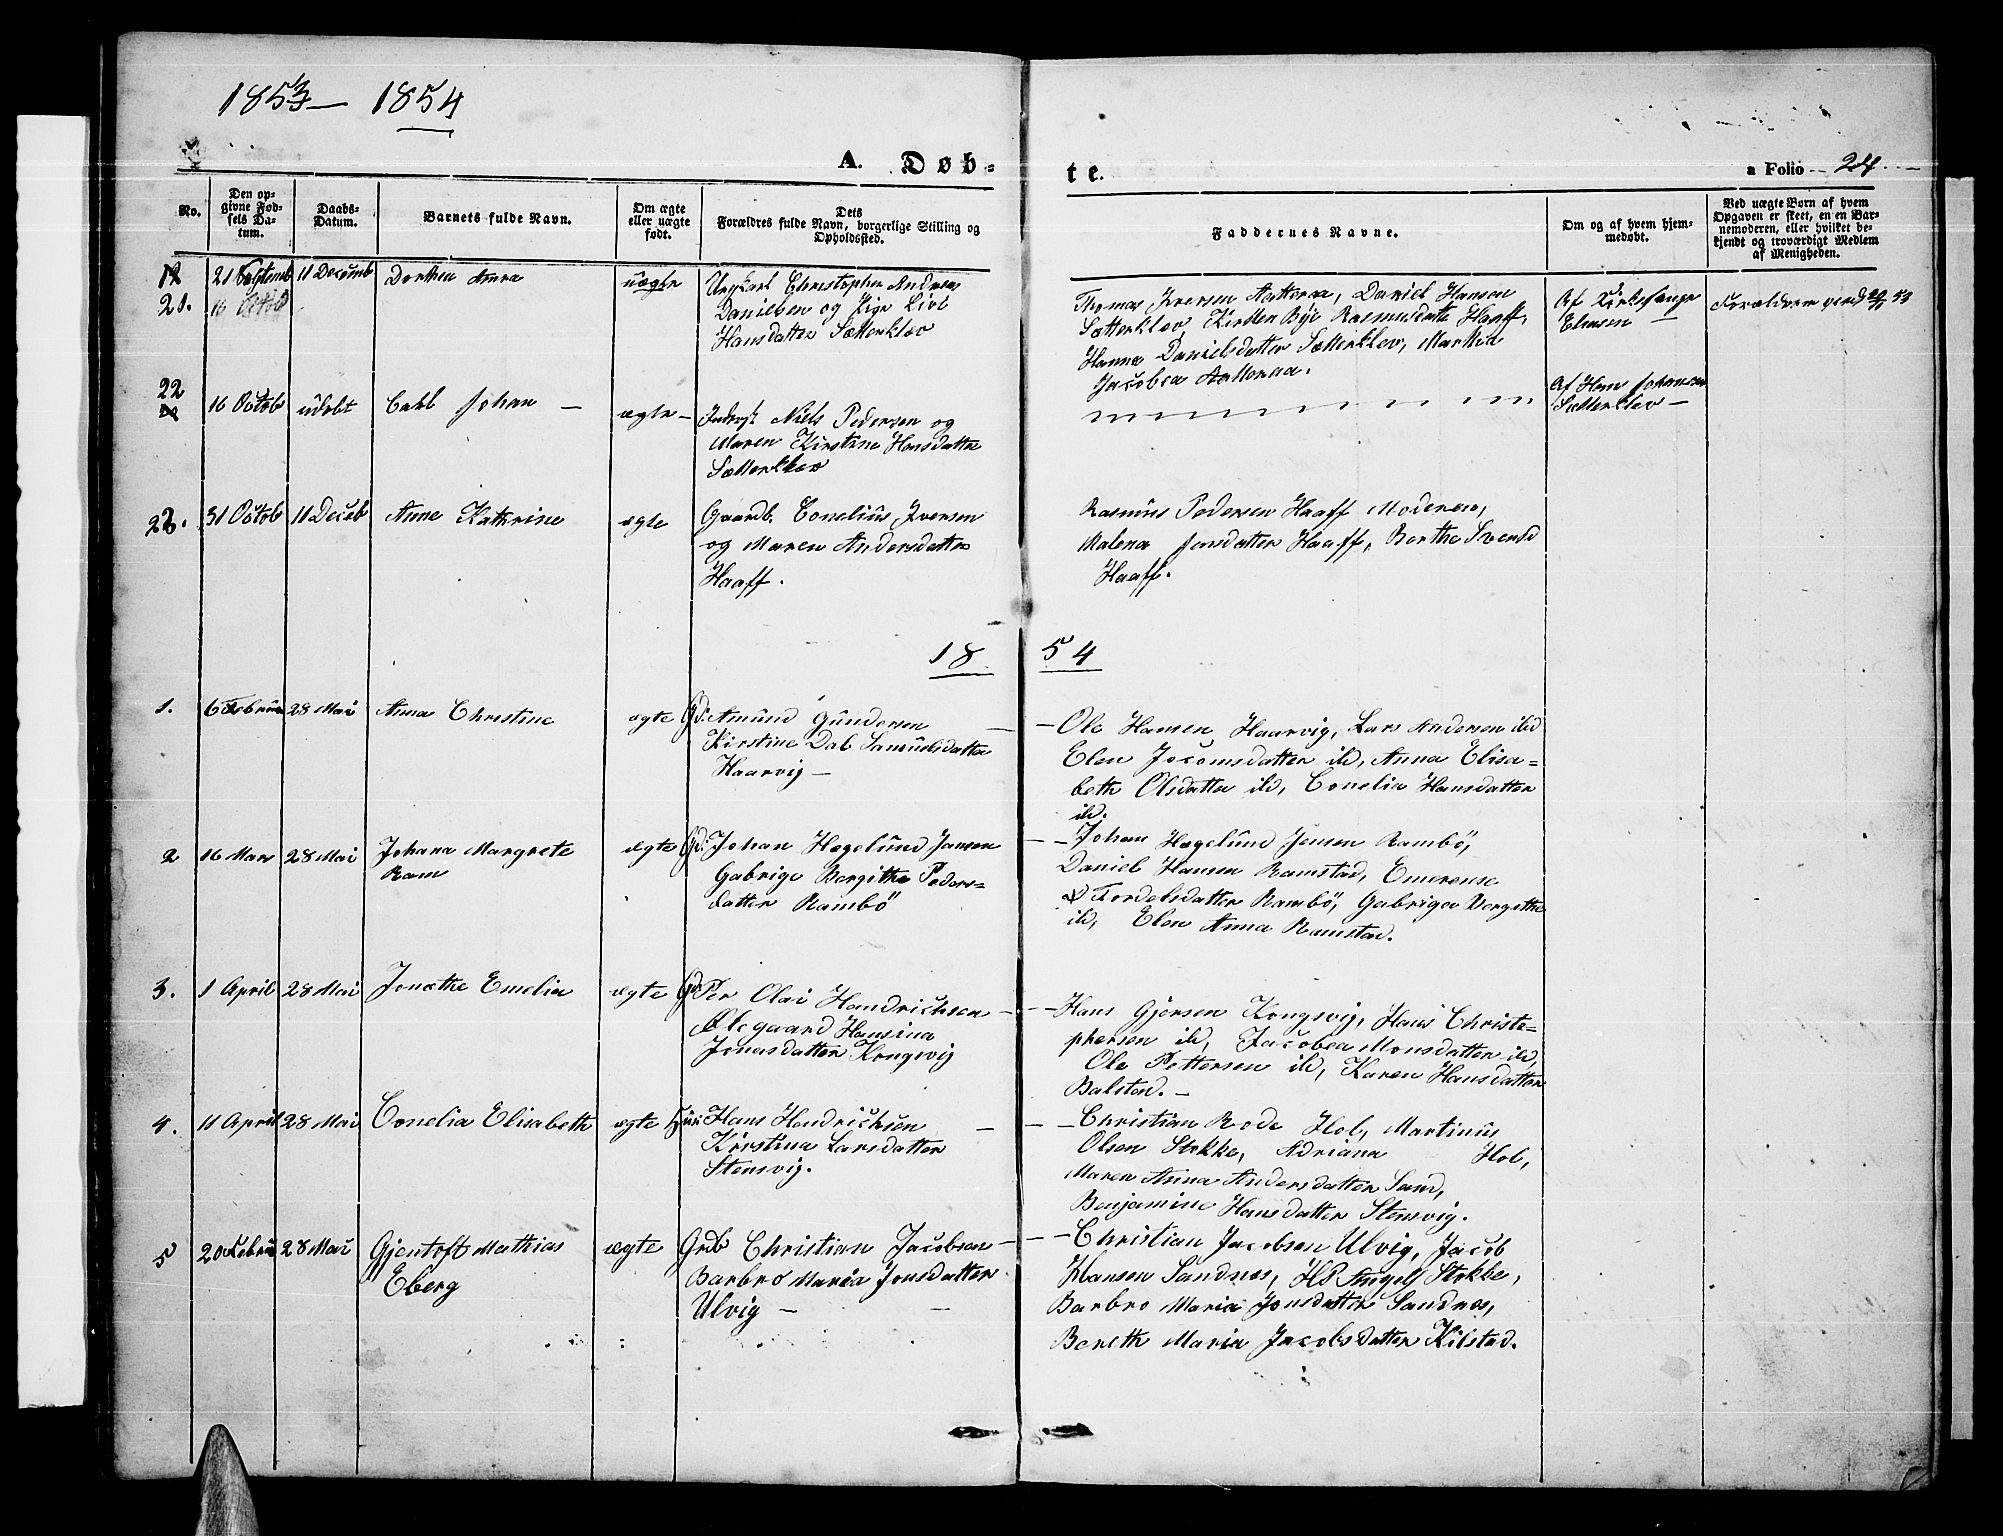 1853 — 1854
A. Døb-
te.
a Folio 24
No.
Den op-
givne Fød-
sels Da-
tum.
Daabs-
Datum.
Barnets fulde Navn.
Om ægte
eller uægte
født.
Dets
Forældres fulde Navn, borgerlige Stilling og
Opholdssted.
Faddernes Navne.
Om og af hvem hjem-
medøbt.
Ved uægte Børn af hvem
Opgaven er skeet, en en Bar-
nemoderen, eller hvilket be-
kjendt og troværdigt Medlem
af Menigheden.
21.
21 Septemb
16 Octob
11 Decemb
Dorthea Anna
uægte
Ungkarl Christopher Andreas
Danielsen og Pige Livl
Hansdatter Sætterklev
Thomas Iversen Aatteraa, Daniel Hansen
Sætterklev, Kirsten Bye Rasmusdatt Haaff,
Hanna Danielsdatter Sætterklev, Martha
Jacobea Aatteraa.
Af Kirkesanger
Eliasen —
Forældrene
22
16 Octob
udøbt
Carl Johan —
ægte —
Niels Pedersen og
Maren Kirstine Hansdatter
Sætterklev
Af Hans Johansen
Sætterklev —
23.
31 Octob
11 Deceb
Anne Kathrine
ægte
Gaardb. Conelius Iversen
og Maren Andersdatter
Haaff.
Rasmus Pedersen Haaff Moderen,
Malena Jonsdatter Haaff, Berthe Svensd
Haaff.
18 54
1.
6 Februa
28 Mai
Anna Christine
ægte
Gd. Amund Gundersen —
Kirstine Dal Samuelsdatter
Haarvig —
— Ole Hansen Haarvig, Lars Andersen ibd
Elen Jocomsdatter ibd, Anna Elisa=
beth Olsdatter ibd, Conelia Hansdatter
ibd.
2
16 Mars
28 Mai
Johana Margrete
Ram
ægte
Gd. Johan Hegelund Jensen
Gabrige Bergithe Peders=
datter Rambö
— Johan Hegelund Jensen Rambö,
Daniel Hansen Ramstad, Emerense
Tordelsdatter Rambö, Gabriga Bergithe
ibd, Elen Anna Ramstad.
3.
1 April
28 Mai
Jonethe Emelia
ægte
Gd. Per Olai Hendrichsen —
Olegaard Hansina
Jonasdatter Kongsvig
— Hans Gjersen Kongsvig, Hans Christo=
phersen ibd, Jacobea Monsdatter ibd,
Ole Pettersen ibd, Karen Hansdatter
Balstad. —
4.
11 April
28 Mai
Conelia Elisabeth
ægte
Hans Hendrichsen —
Kirstina Larsdatter
Stensvig.
— Christian Rode Hol, Martinus
Olsen Stokke, Adriana Hol,
Maren Anna Andersdatter Sand,
Benjamine Hansdatter Stensvig.
5
20 Febru
28 Mai
Gjentoft Mathias
Eberg
ægte
Grdb Christian Jacobsen —
Barbro Maria Jonsdatter
Ulvig —
— Christian Jacobsen Ulvig, Jacob
Hansen Sandnes, HP Angell Stokke,
Barbro Maria Jonsdatter Sandnes,
Bereth Maria Jacobsdatter Kilstad.